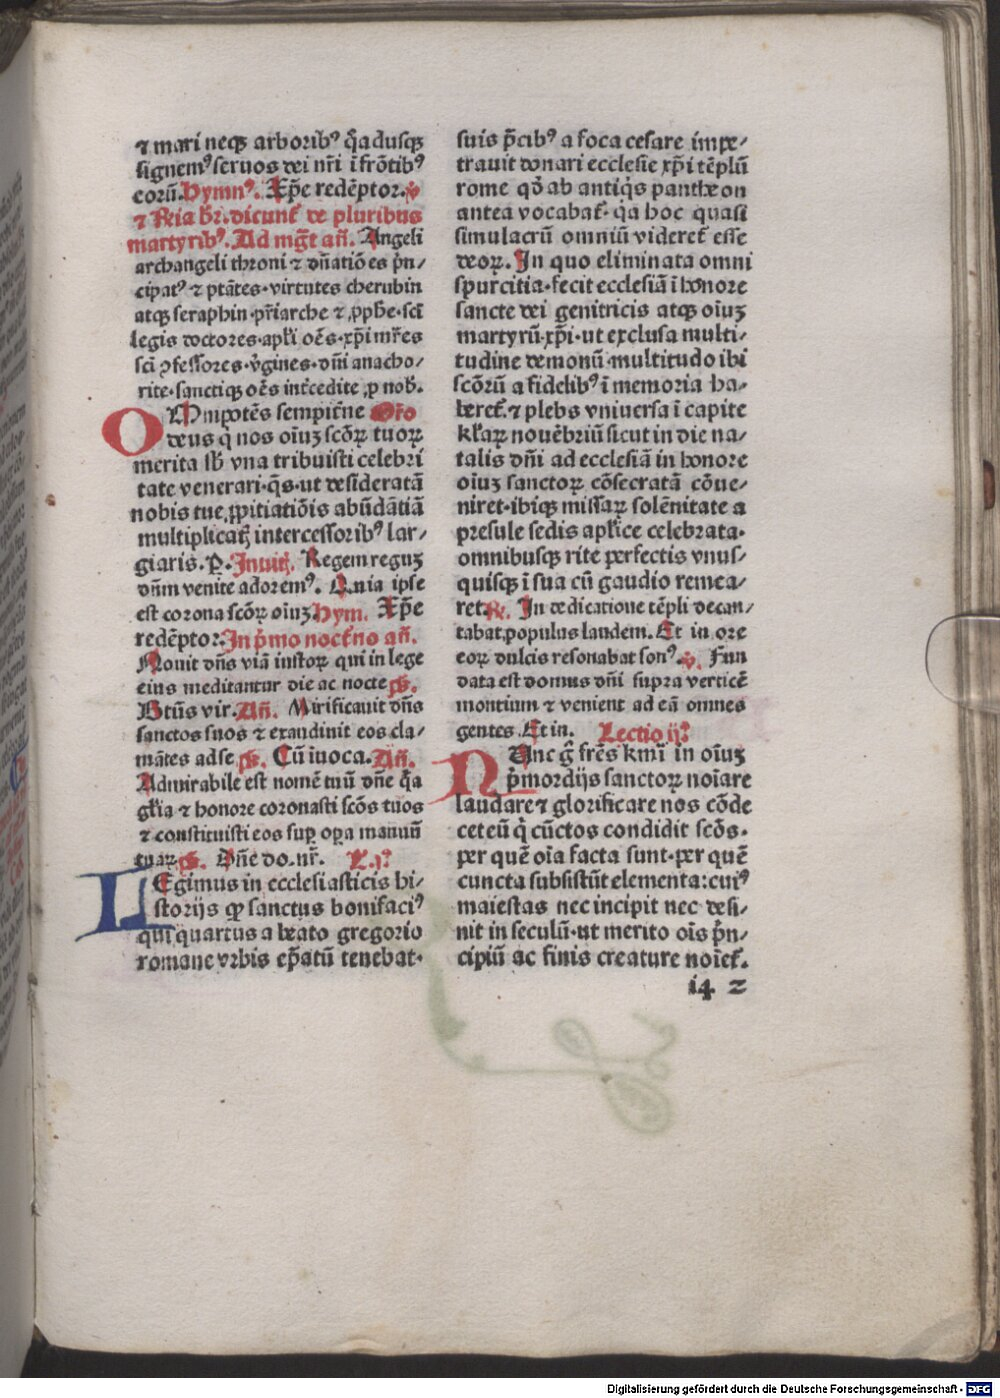 ⁊ mari neqꝫ arboribꝰ q̄adusqꝫ
signemꝰ seruos dei nr̄i ī frōtibꝰ
eorū. Hymnꝰ. Xp̄e redēptor. ꝟ
⁊ Rn̄ia br̄. dicunt̄ de pluribus
martyribꝰ. Ad mgt̄ an̄. Angeli
archangeli throni ⁊ dn̄atiōes p̄n⸗
cipatꝰ ⁊ ptātes·virtutes cherubin
atqꝫ seraphin·pr̄iarche ⁊ ꝓphe·sct̄i
legis doctores·apl̄i oēs·xp̄i mr̄es
sct̄i ꝯfessores·v̄gines·dn̄i anacho⸗
rite·sanctiqꝫ oēs int̄cedite ꝓ nob̄.
OMnipotēs sempit̄ne Or̄o
deus q̄ nos oīuꝫ scōꝝ tuoꝝ
merita sb̄ vna tribuisti celebri
tate venerari·q̄s·vt desideratā
nobis tue ꝓpitiatiōis abūdātiā
multiplicatꝭ intercessoribꝰ lar⸗
giaris. ꝑ. Inuitꝭ. Regem reguꝫ
dn̄m venite adoremꝰ. Quia ipse
est corona scōꝝ oīuꝫ Hym. Xp̄e
redēptor. In p̄mo noct̄no an̄.
Nouit dn̄s viā iustoꝝ qui in lege
eius meditantur die ac nocte ps̄.
Btūs vir. An̄. Mirificauit dn̄s
sanctos suos ⁊ exaudiuit eos cla⸗
mātes ad se ps̄. Cū īuoca. An̄.
Admirabile est nomē tuū dn̄e q̄a
gl̄ia ⁊ honore coronasti scōs tuos
⁊ constituisti eos suꝑ oꝑa manuū
tuaꝝ ps̄. Dn̄e do. nr̄. L. jꝰ
LEgimus in ecclesiasticis hi⸗
storijs ꝙ sanctus bonifaciꝰ
qui quartus a beato gregorio
romane vrbis ep̄atū tenebat·
suis p̄cibꝰ a foca cesare impe⸗
trauit donari ecclesie xp̄i tēplū
rome qd̄ ab antiq̄s pantheon
antea vocabat̄·q̄a hoc quasi
simulacrū omniū videret̄ esse
deoꝝ. In quo eliminata omni
spurcitia·fecit ecclesiā ī honore
sancte dei genitricis atqꝫ oīuꝫ
martyrū·xp̄i·vt exclusa multi⸗
tudine demonū·multitudo ibi
scōrū a fidelibꝰ ī memoria ha⸗
beret̄·⁊ plebs vniuersa ī capite
kl̄aꝝ nouēbriū sicut in die na⸗
talis dn̄i ad ecclesiā in honore
oīuꝫ sanctoꝝ cōsecratā cōue⸗
niret·ibiqꝫ missaꝝ solēnitate a
presule sedis apl̄ice celebrata·
omnibusqꝫ rite perfectis vnus⸗
quisqꝫ ī sua cū gaudio remea⸗
ret. R̄. In dedicatione tēpli decan⸗
tabat populus laudem. Et in ore
eoꝝ dulcis resonabat sonꝰ. ꝟ. Fun
data est domus dn̄i supra verticē
montium ⁊ venient ad eā omnes
gentes. Et in. Lectio ijꝰ
NUnc ḡ frēs kmī in oīuꝫ
p̄mordijs sanctoꝝ noīare
laudare ⁊ glorificare nos cōde
cet eū q̄ cūctos condidit scōs·
per quē oīa facta sunt·per quē
cuncta subsistūt elementa: cuiꝰ
maiestas nec incipit nec desi⸗
nit in seculū·vt merito oīs p̄n⸗
cipiū ac finis creature noīet̄.
i4 2
Digitalisierung gefördert durch die Deutsche Forschungsgemeinschaft - DFG